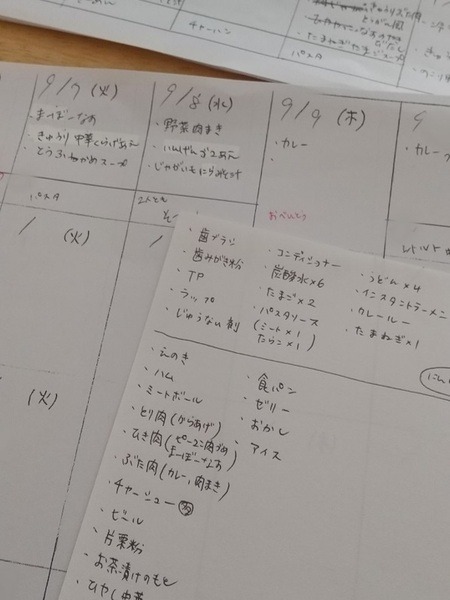 チャーハン
・たまねぎたまごスープ
パスタ
9/7 (火)
・まーぼーなす
・きゅうり中華くらげあえ
・とうふわかめスープ
パスタ
9/8 (水)
・野菜肉まき
・じゃがいもにらみそ汁
9/9 (木)
・カレー
・
おべんとう
9
・カレー
レトルト
(火)
(火)
・歯ブラシ
・歯みがき粉
・TP
・ラップ
・じゅうなん剤
・コンディショナー
・炭酸水×6
・たまご×2
・パスタソース
(ミート×1
たらこ×1)
・うどん×4
・インスタントラーメン
・カレールー
・たまねぎ×1
にん
・えのき
・ハム
・ミートボール
・とり肉(からあげ)
・ひき肉(ピーマン肉づめ
まーぼーなす)
・ぶた肉(カレー,肉まき)
・チャーシュー
・ビール
・片栗粉
・お茶漬けのもと
・ひやし中華
・食パン
・ゼリー
・おかし
・アイス